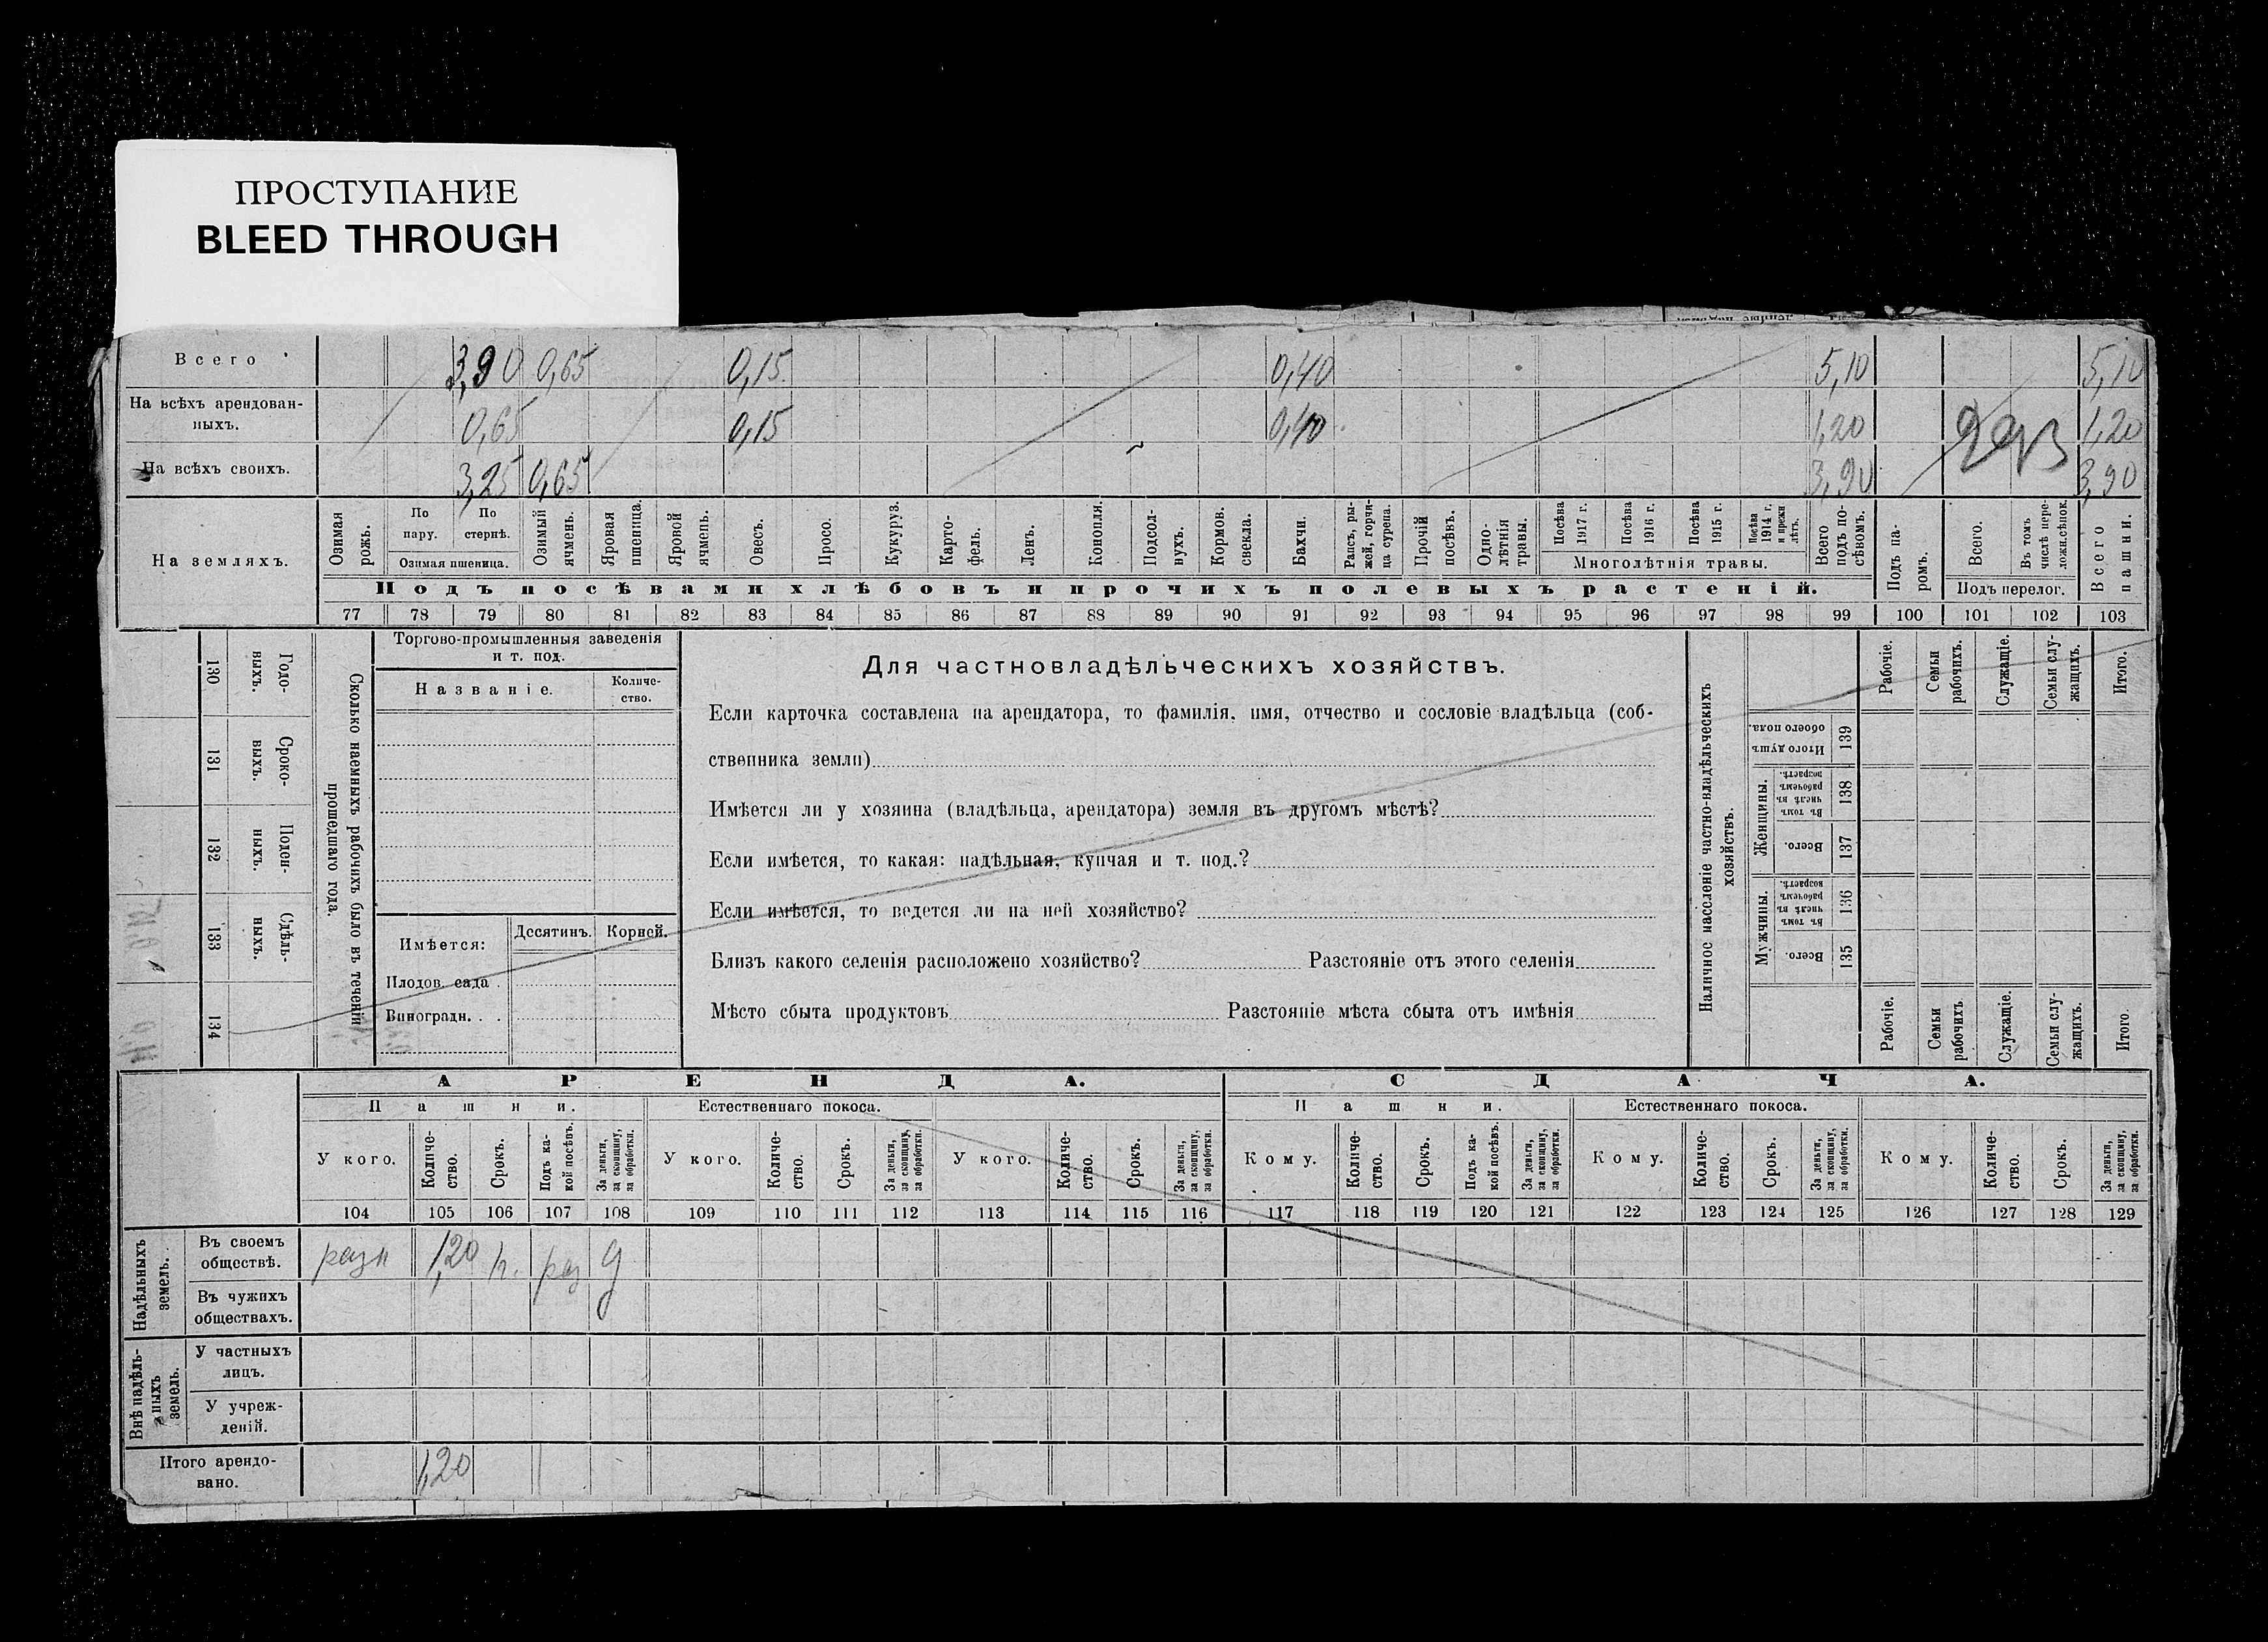 ПРОСТУПАНИЕ
BLEED THROUGH
Всего 3,90 0,65 0,15 0,40 5,10 5,10
На всѣхъ арендован-
ныхъ. 0,65 0,15 0,40 1,20 1,20
На всѣхъ своихъ. 3,25 0,65 3,90 3,90
На земляхъ.
Озимая рожь.
По пару.
По стернѣ.
Озимая пшеница.
Озимый ячмень.
Яровая пшеница.
Яровой ячмень.
Овесъ.
Просо.
Кукуруз.
Карто-
фель.
Ленъ.
Конопля.
Подсол-
нухъ.
Кормов.
свекла.
Бахчи.
Рапсъ, ры-
жей, горчи-
ца сурепа.
Прочій посѣвъ.
Одно-
лѣтнія
травы.
Посѣва 1917 г.
Посѣва 1916 г.
Посѣва 1915 г.
Посѣва 1914 г. и прежн лѣтъ.
Многолѣтнія травы.
Всего подъ по-
сѣвомъ.
Подъ па-
ромъ.
Всего.
Въ томъ числѣ пере-
ложн.сѣнок.
Подъ перелог.
Всего пашни.
Подъ посѣвами хлѣбовъ и прочихъ полевыхъ растеній.
77 78 79 80 81 82 83 84 85 86 87 88 89 90 91 92 93 94 95 96 97 98 99 100 101 102 103
130 Годо-
выхъ.
131 Сроко-
выхъ.
132 Поден-
ныхъ.
133 Сдѣль-
ныхъ.
134
Сколько наемныхъ рабочихъ было въ теченіи
прошедшаго года.
Торгово-промышленныя заведенія
и т. под.
Названіе.
Количе-
ство.
Имѣется:
Десятинъ.
Корней.
Плодов. сада .
Виноградн. . .
Для частновладѣльческихъ хозяйствъ.
Если карточка составлена на арендатора, то фамилія, имя, отчество и сословіе владѣльца (соб-
ственника земли)
Имѣется ли у хозяина (владѣльца, арендатора) земля въ другомъ мѣстѣ?
Если имѣется, то какая: надѣльная, купчая и т. под.?
Если имѣется, то ведется ли на ней хозяйство?
Близъ какого селенія расположено хозяйство? Разстояніе отъ этого селенія
Мѣсто сбыта продуктовъ Разстояніе мѣста сбыта отъ имѣнія
Наличное населеніе частно-владѣльческихъ
хозяйствъ.
Рабочіе.
Семьи рабочихъ.
Служащіе.
Семьи слу-
жащихъ.
Итого.
Итого душъ обоего пола. 139
Женщины.
Въ томъ числѣ въ рабочемъ возрастѣ. 138
Всего. 137
Мужчины.
Въ томъ числѣ въ рабочемъ возрастѣ. 136
Всего. 135
Рабочіе.
Семьи рабочихъ
Служащіе.
Семьи слу-
жащихъ.
Итого.
АРЕНДА. СДАЧА.
Пашни. Естественнаго покоса. Пашни. Естественнаго покоса.
У кого. Количе-
ство. Срокъ. Подъ ка-
кой посѣвъ. За деньги, за скопщину, за обработки.
У кого. Количе-
ство. Срокъ. За деньги, за скопщину, за обработки.
У кого. Количе-
ство. Срокъ. За деньги, за скопщину, за обработки.
Кому. Количе-
ство. Срокъ. Подъ ка-
кой посѣвъ. За деньги, за скопщину, за обработки.
Кому. Количе-
ство. Срокъ. За деньги, за скопщину, за обработки.
Кому. Количе-
ство. Срокъ. За деньги, за скопщину, за обработки.
104 105 106 107 108 109 110 111 112 113 114 115 116 117 118 119 120 121 122 123 124 125 126 127 128 129
Надѣльныхъ
земель.
Въ своемъ
обществѣ. разн 1,20 раз д
Въ чужихъ
обществахъ.
Внѣ надѣль-
ныхъ
земель.
У частныхъ
лицъ.
У учреж-
деній.
Итого арендо-
вано. 1,20